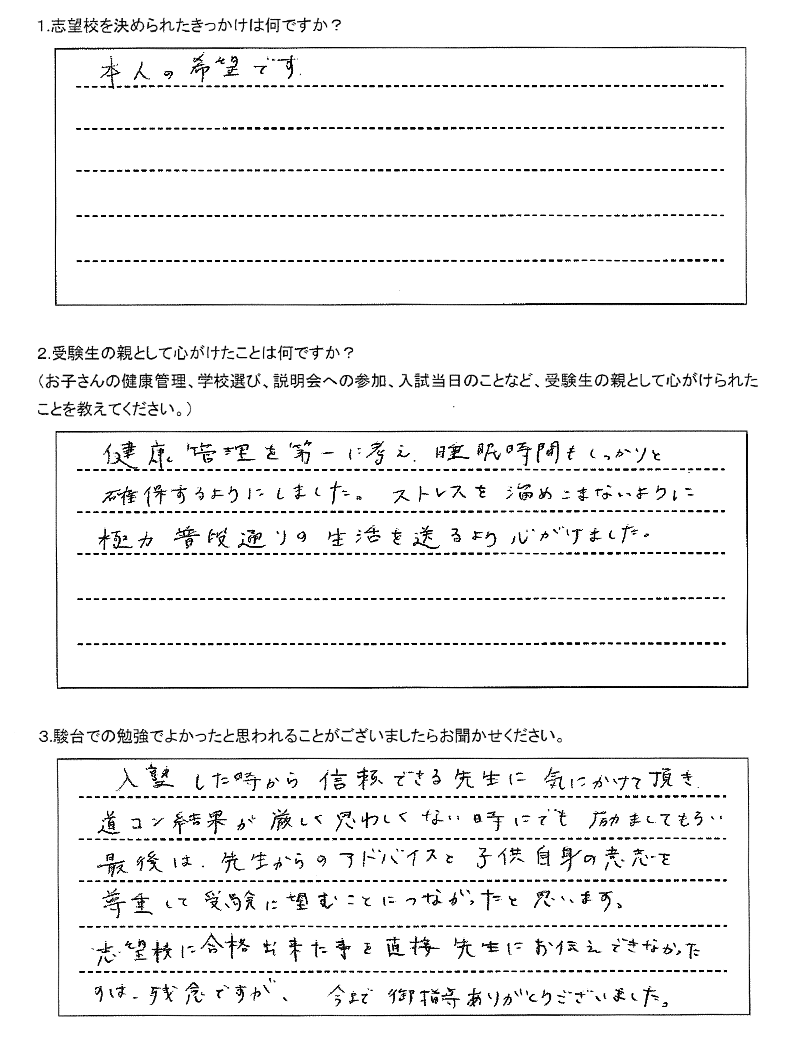 1.志望校を決められたきっかけは何ですか？
本人の希望です.
2.受験生の親として心がけたことは何ですか？
（お子さんの健康管理、学校選び、説明会への参加、入試当日のことなど、受験生の親として心がけられた
ことを教えてください。）
健康管理を第一に考え、睡眠時間もしっかりと
確保するようにしました。ストレスを溜めこまないように
極力普段通りの生活を送るよう心がけました。
3.駿台での勉強でよかったと思われることがございましたらお聞かせください。
入塾した時から信頼できる先生に気にかけて頂き、
道コン結果が厳しく思わしくない時にでも励ましてもらい
最後は、先生からのアドバイスと子供自身の意志を
尊重して受験に望むことにつながったと思います。
志望校に合格出来た事を直接先生にお伝えできなかった
のは、残念ですが、今まで御指導ありがとうございました。